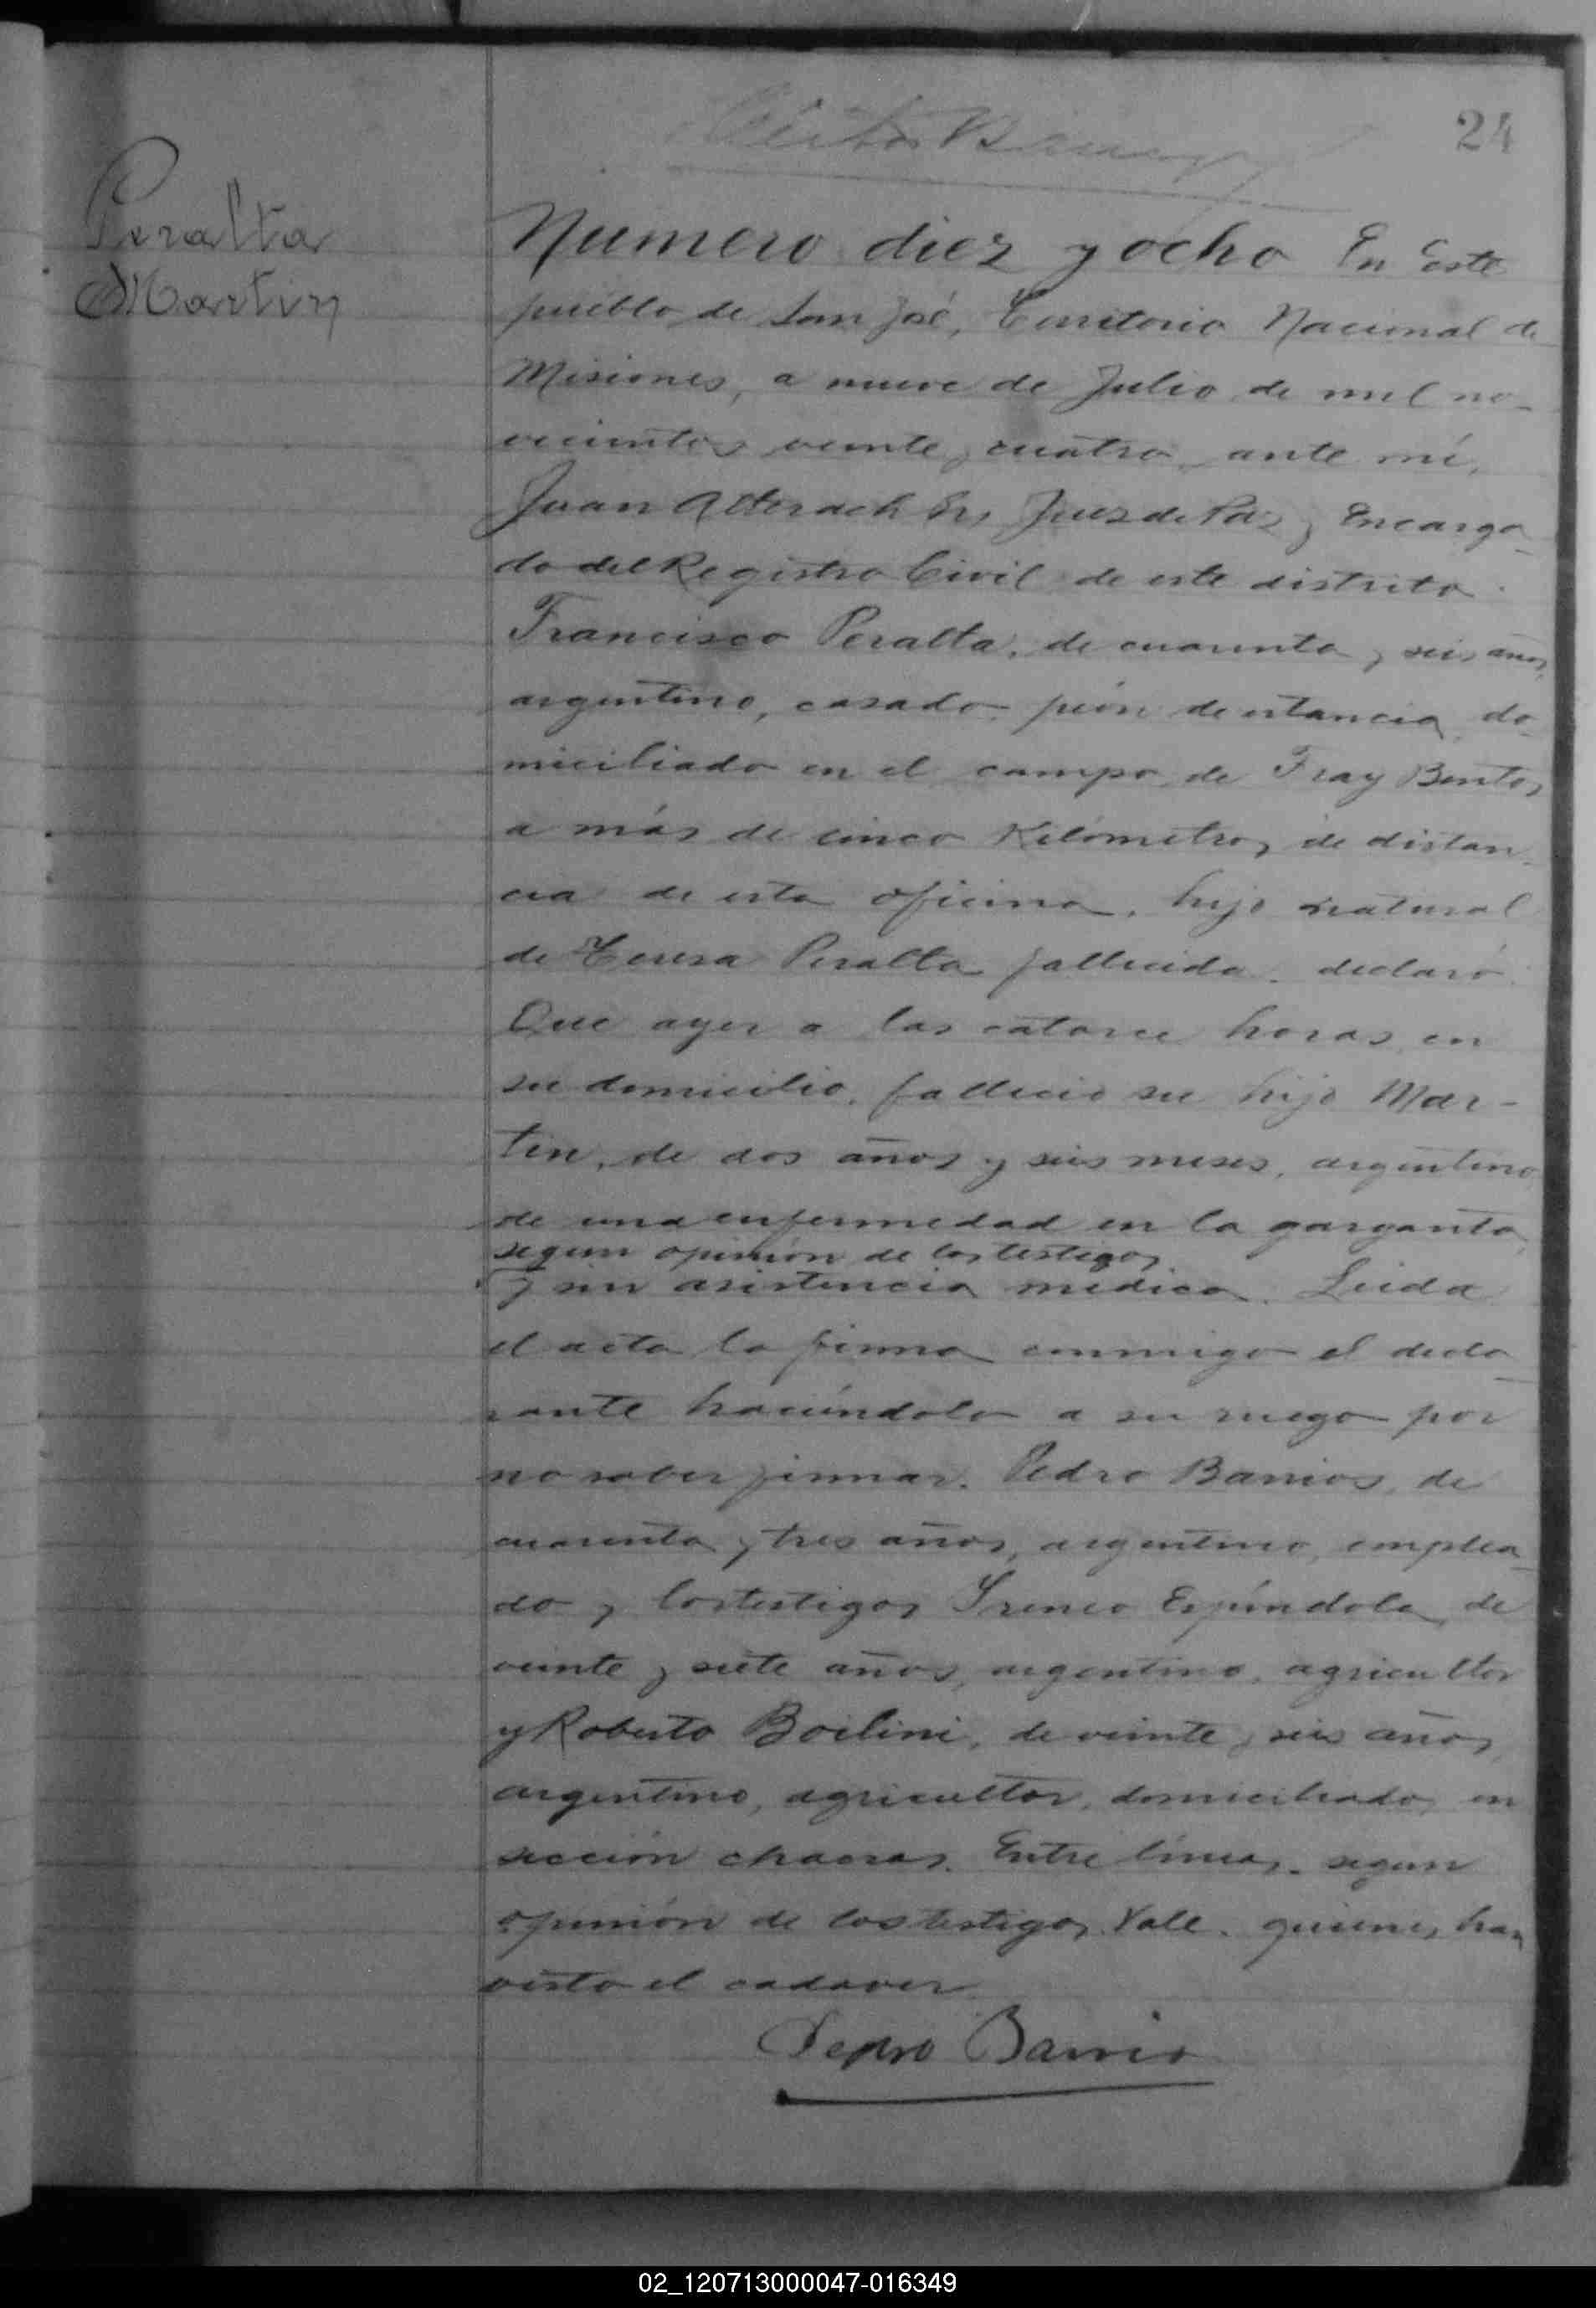 24
Peralta
Martin
Numero diez y ocho En Este
pueblo de San José, Territorio Nacional de
Misiones, a nueve de Julio de mil no-
vecientos veinte y cuatro, ante mí,
Juan Juez de Paz y Encarga-
do del Registro Civil de este distrito.
Francisco Peralta, de cuarenta y seis años,
argentino, casado, peón de estancia, do-
miciliado en el campo de Fray Bentos,
a más de cinco Kilómetros de distan-
cia de esta oficina, hijo natural
de Teresa Peralta fallecida, declaró:
Que ayer a las catorce horas, en
su domicilio, falleció su hijo Mar-
tin, de dos años y seis meses, argentino
de una enfermedad en la garganta,
segun opinión de los testigos
y sin asistencia médica. Leida
el acta la firma conmigo el decla-
rante haciéndolo a su ruego por
no saber firmar, Pedro Barrios, de
cuarenta y tres años, argentino, emplea-
do y los testigos Ireneo Espíndola, de
veinte y siete años, argentino, agricultor
y Roberto Boilini, de veinte y seis años,
argentino, agricultor, domiciliados en
sección chacras. Entre lineas. segun
opinión de los testigos. Vale. quienes han
visto el cadaver
Pedro Barrio
02_120713000047-016349